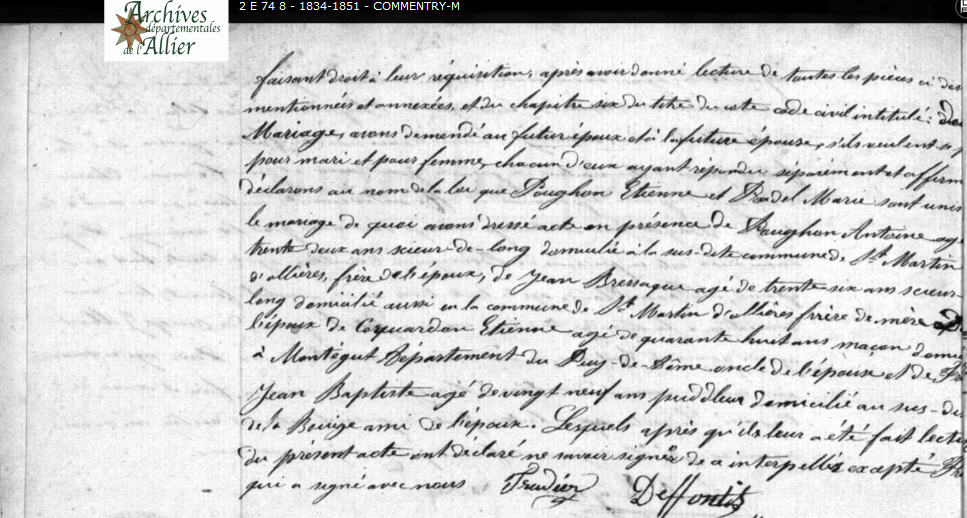 Archives
départementales
de l'Allier
2 E 74 8 - 1834-1851 - COMMENTRY-M
faisant droit à leur réquisition, après avoir donné lecture de toutes les pièces ci des
mentionnées et annexées, et du chapitre six du titre du code civil intitulé: du
Mariage, avons demandé au futur époux et à la future épouse, s'ils veulent se p
pour mari et pour femme, chacun d'eux ayant répondu séparément et affirm
déclarons au nom de la loi que Poughon Etienne et Marie sont unis
le mariage de quoi avons dressé acte en présence de Poughon Antoine agé
trente deux ans scieur-de-long domicilié à la sus-dite commune de St Martin
d'ollières, frère de l'époux, de Jean Bressague agé de trente six ans scieur-
long domicilié aussi en la commune de St Martin d'ollières frère de mère de
l'époux de Etienne agé de quarante huit ans maçon domici
à Montégut Département du Puy-de-Dôme oncle de l'épouse et de
Jean Baptiste agé de vingt neuf ans puddleur domicilié au sus-dit
de la ami de l'époux. Lesquels après qu'ils leur a été fait lectu
du présent acte ont déclaré ne savoir signer de ce interpellés excepté
qui a signé avec nous Trudier Deffontis